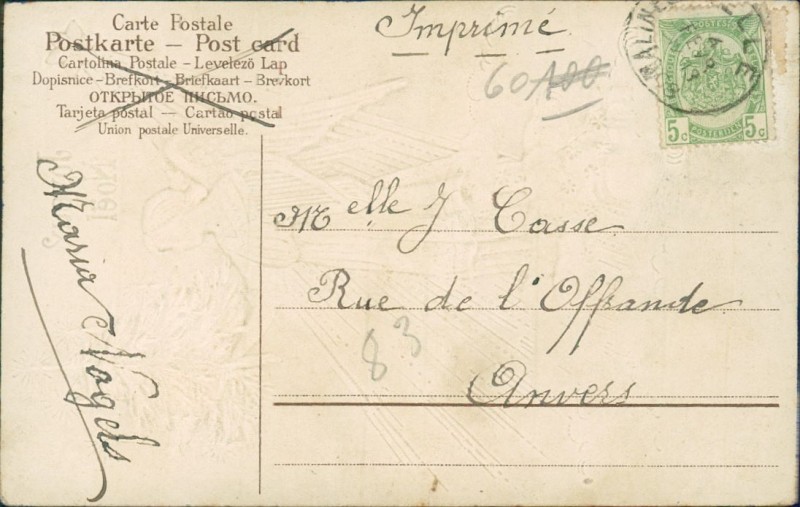 Carte Postale
Postkarte — Post card
Cartolina Postale - Levelező Lap
Dopisnice - Brefkort - Briefkaart - Brevkort
ОТКРЫТОЕ ПИСЬМО.
Tarjeta postal — Cartão postal
Union postale Universelle.
Imprimé
60 100
5c 5c
Noël
Melle J Casse
Rue de l'Offrande
83
Anvers
Maria Nagels